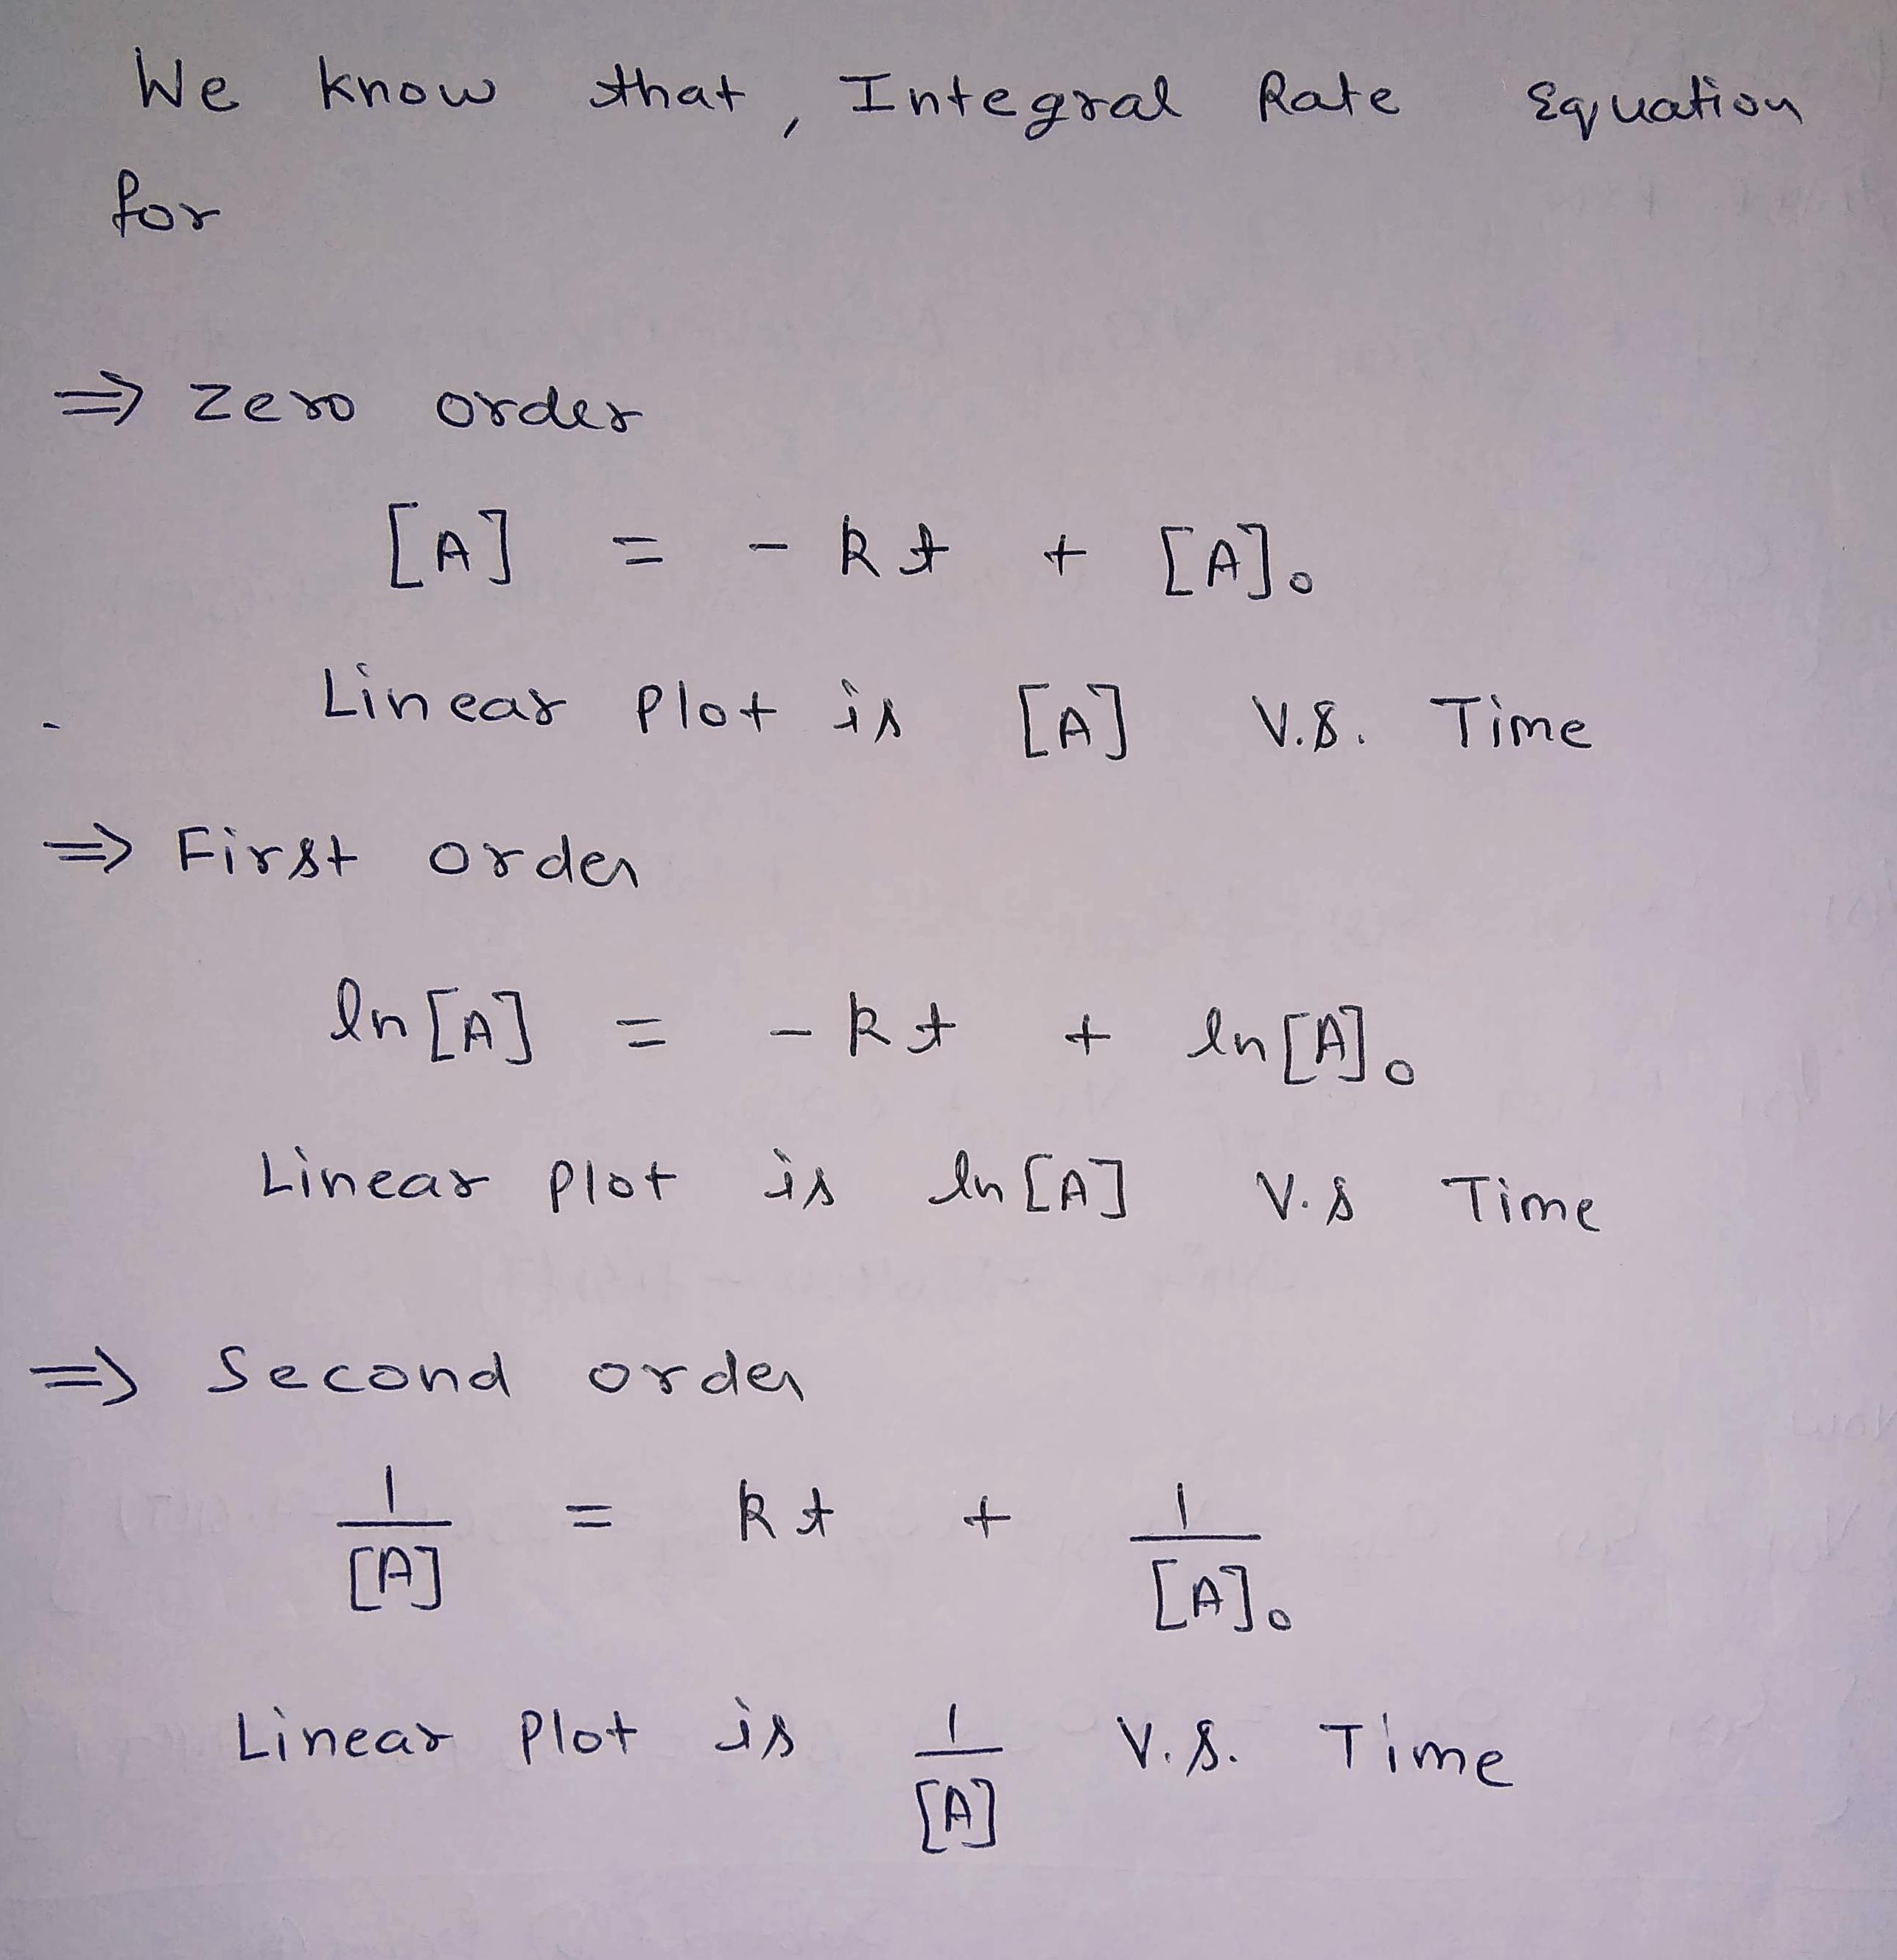 We know that, Integral Rate Equation
for
⇒ Zero order
[A] = - kt + [A]₀
Linear Plot is [A] V.S. Time
⇒ First order
ln[A] = - kt + ln[A]₀
Linear plot is ln[A] V.s Time
⇒ Second order
1/[A] = kt + 1/[A]₀
Linear Plot is 1/[A] V.S. Time